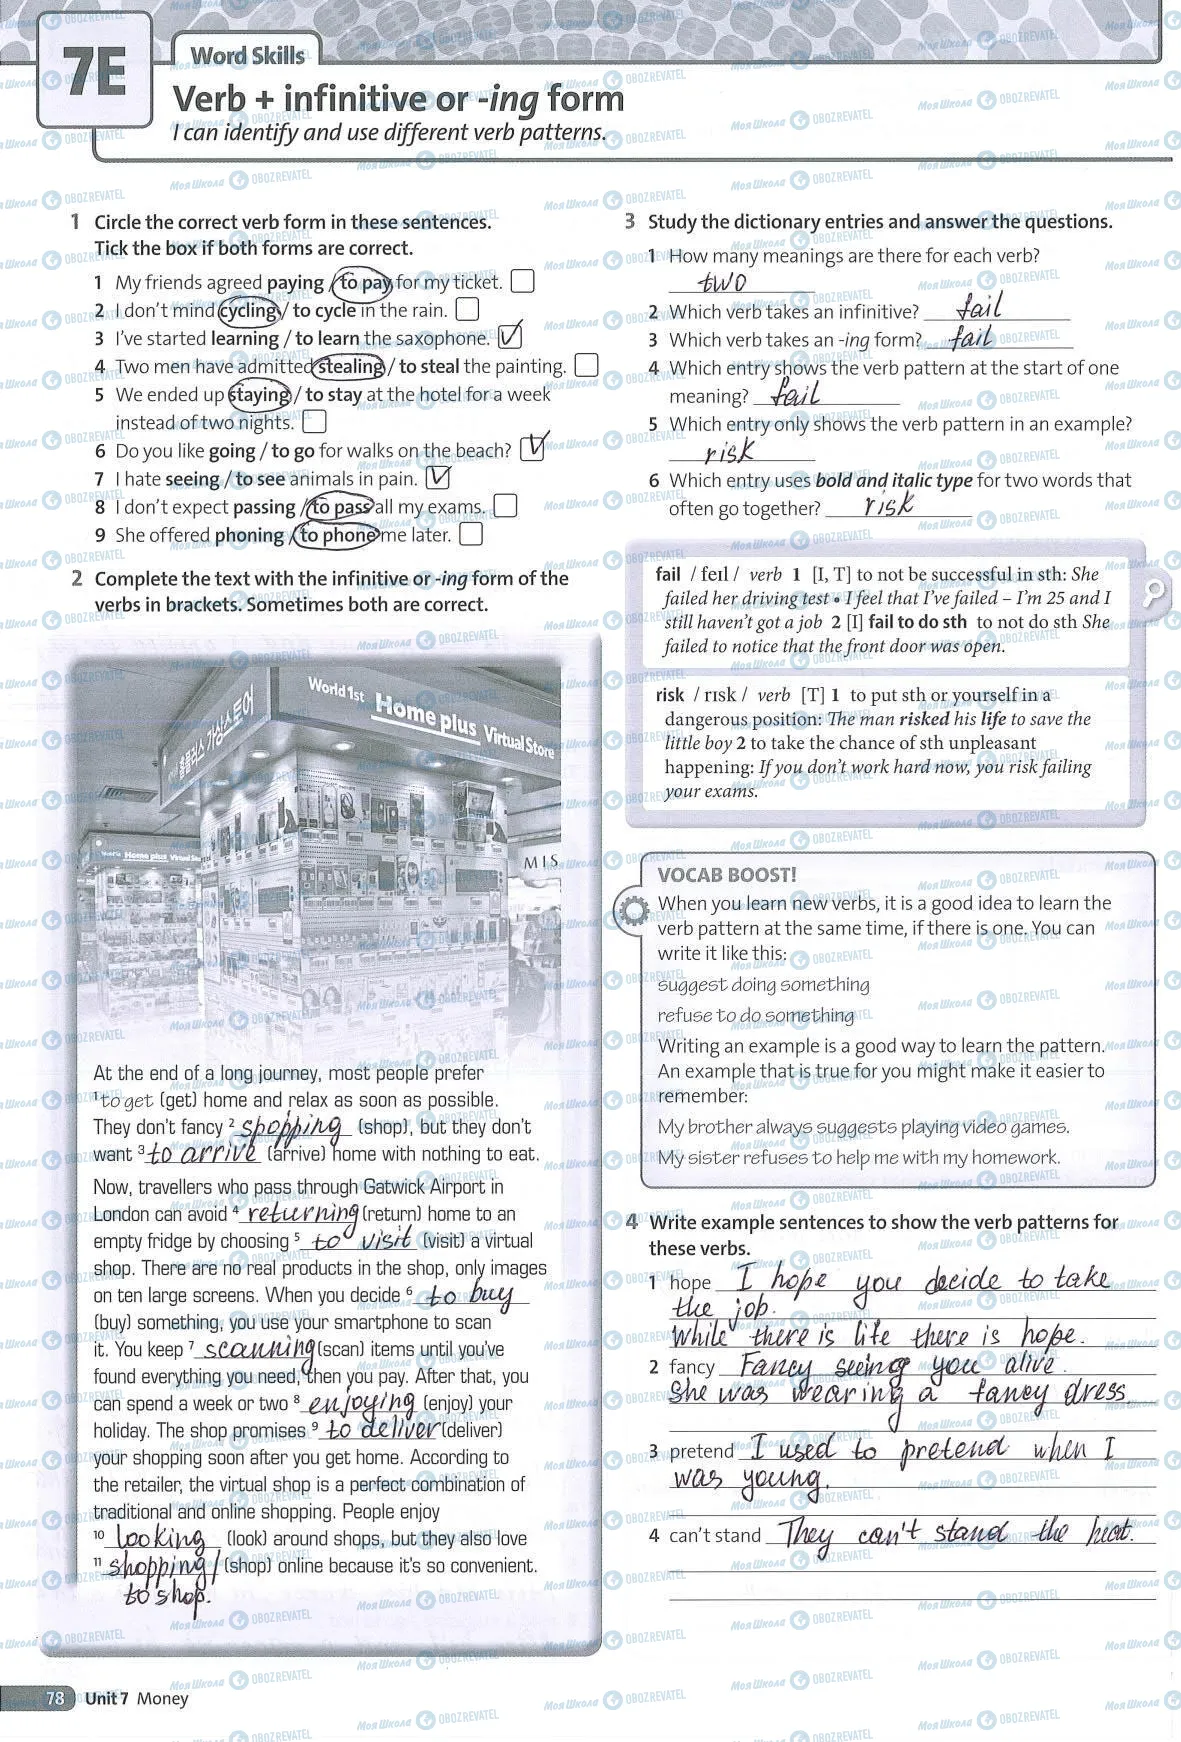 7E
Word Skills
Verb + infinitive or -ing form
I can identify and use different verb patterns.
1 Circle the correct verb form in these sentences.
Tick the box if both forms are correct.
1 My friends agreed paying / to pay for my ticket.
2 I don't mind cycling / to cycle in the rain.
3 I've started learning / to learn the saxophone. ✓
4 Two men have admitted stealing / to steal the painting.
5 We ended up staying / to stay at the hotel for a week
instead of two nights.
6 Do you like going / to go for walks on the beach? ✓
7 I hate seeing / to see animals in pain. ✓
8 I don't expect passing / to pass all my exams.
9 She offered phoning / to phone me later.
2 Complete the text with the infinitive or -ing form of the
verbs in brackets. Sometimes both are correct.
World 1st Home plus Virtual Store
홈플러스 가상스토어
Home plus Virtual
MIS
At the end of a long journey, most people prefer
1 to get (get) home and relax as soon as possible.
They don't fancy 2 shopping (shop), but they don't
want 3 to arrive (arrive) home with nothing to eat.
Now, travellers who pass through Gatwick Airport in
London can avoid 4 returning (return) home to an
empty fridge by choosing 5 to visit (visit) a virtual
shop. There are no real products in the shop, only images
on ten large screens. When you decide 6 to buy
(buy) something, you use your smartphone to scan
it. You keep 7 scanning (scan) items until you've
found everything you need, then you pay. After that, you
can spend a week or two 8 enjoying (enjoy) your
holiday. The shop promises 9 to deliver (deliver)
your shopping soon after you get home. According to
the retailer, the virtual shop is a perfect combination of
traditional and online shopping. People enjoy
10 looking (look) around shops, but they also love
11 shopping / (shop) online because it's so convenient.
to shop.
3 Study the dictionary entries and answer the questions.
1 How many meanings are there for each verb?
two
2 Which verb takes an infinitive? fail
3 Which verb takes an -ing form? fail
4 Which entry shows the verb pattern at the start of one
meaning? fail
5 Which entry only shows the verb pattern in an example?
risk
6 Which entry uses bold and italic type for two words that
often go together? risk
fail / feɪl / verb 1 [I, T] to not be successful in sth: She
failed her driving test • I feel that I've failed – I'm 25 and I
still haven't got a job 2 [I] fail to do sth to not do sth She
failed to notice that the front door was open.
risk / rɪsk / verb [T] 1 to put sth or yourself in a
dangerous position: The man risked his life to save the
little boy 2 to take the chance of sth unpleasant
happening: If you don't work hard now, you risk failing
your exams.
VOCAB BOOST!
When you learn new verbs, it is a good idea to learn the
verb pattern at the same time, if there is one. You can
write it like this:
suggest doing something
refuse to do something
Writing an example is a good way to learn the pattern.
An example that is true for you might make it easier to
remember:
My brother always suggests playing video games.
My sister refuses to help me with my homework.
4 Write example sentences to show the verb patterns for
these verbs.
1 hope I hope you decide to take
the job.
While there is life there is hope.
2 fancy Fancy seeing you alive.
She was wearing a fancy dress
3 pretend I used to pretend when I
was young.
4 can't stand They can't stand the heat.
78 Unit 7 Money
Моя Школа OBOZREVATEL